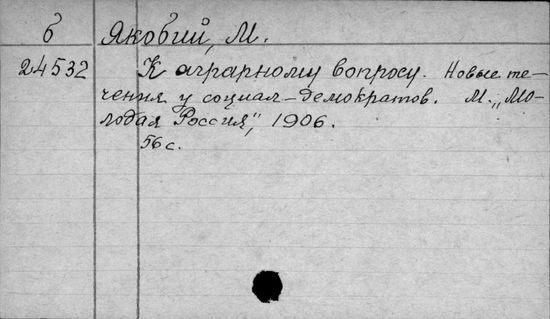 б Якобий, М.
24532 К аграрному вопросу. Новые те-
чения у социал-демократов. М. „Мо-
лодая Россия", 1906.
56 с.